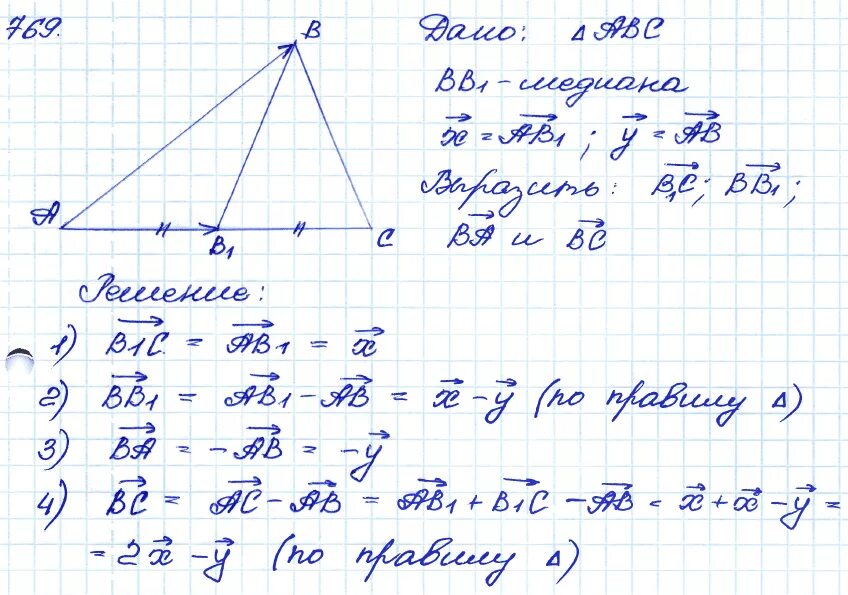 769.
B
A
B₁
C
Дано: △ABC
BB₁ - медиана
x⃗ = AB₁⃗ ; y⃗ = AB⃗
Выразить: B₁C⃗; BB₁⃗;
BA⃗ и BC⃗
Решение:
1) B₁C⃗ = AB₁⃗ = x⃗
2) BB₁⃗ = AB₁⃗ - AB⃗ = x⃗ - y⃗ (по правилу △)
3) BA⃗ = -AB⃗ = -y⃗
4) BC⃗ = AC⃗ - AB⃗ = AB₁⃗ + B₁C⃗ - AB⃗ = x⃗ + x⃗ - y⃗ =
= 2x⃗ - y⃗ (по правилу △)